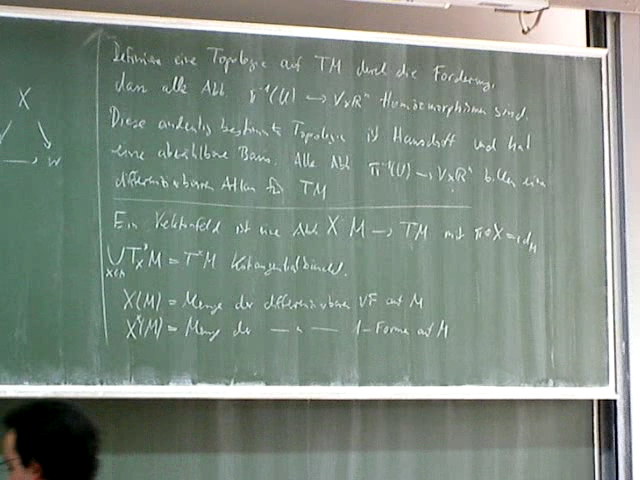 X
W
Definiere eine Topologie auf TM durch die Forderung,
dass alle Abb π⁻¹(U) → V×ℝⁿ Homöomorphismen sind.
Diese eindeutig bestimmte Topologie ist Hausdorff und hat
eine abzählbare Basis. Alle Abb π⁻¹(U) → V×ℝⁿ bilden einen
differenzierbaren Atlas für TM
Ein Vektorfeld ist eine Abb X M → TM mit π∘X = id_M
⋃ T_x* M = T*M Kotangentialbündel.
x∈M
X(M) = Menge der differenzierbaren VF auf M
X*(M) = Menge der — " — 1-Formen auf M